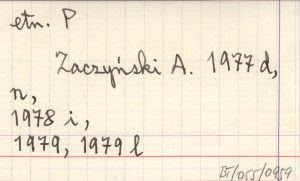 etn. P
Zaczyński A. 1977 d,
n,
1978 i,
1979, 1979 l
BJ/055/0959